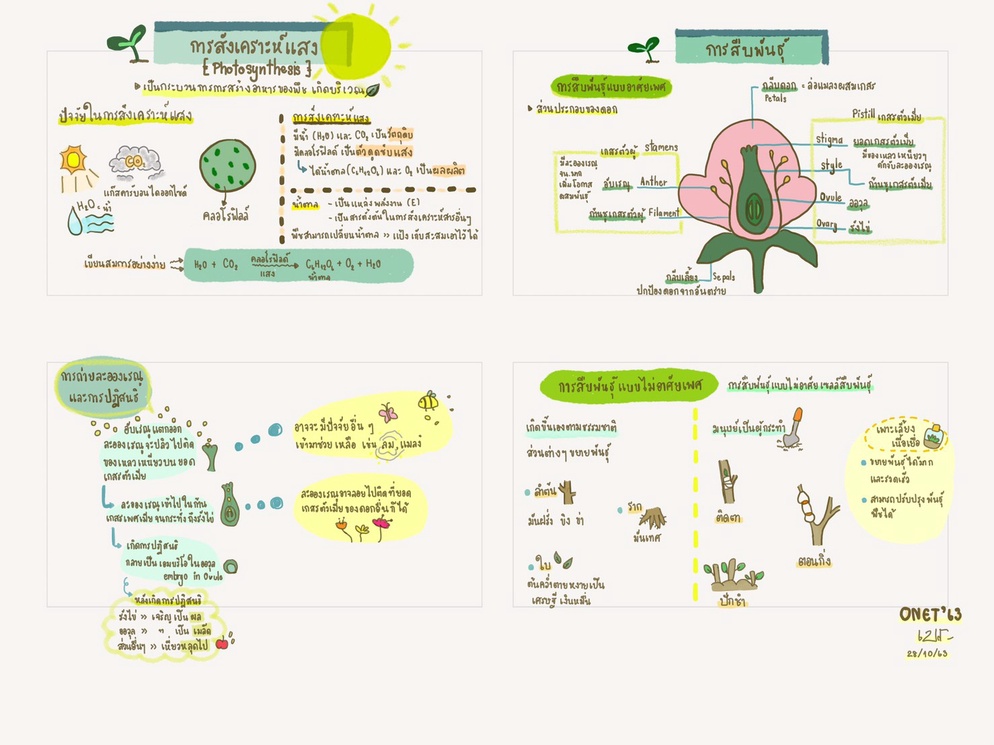 การสังเคราะห์แสง
[Photosynthesis]
เป็นกระบวนการการสร้างอาหารของพืช เกิดบริเวณ
ปัจจัยในการสังเคราะห์แสง
CO₂
แก๊สคาร์บอนไดออกไซด์
H₂O = น้ำ
คลอโรฟิลล์
การสังเคราะห์แสง
มีน้ำ (H₂O) และ CO₂ เป็นวัตถุดิบ
มีคลอโรฟิลล์ เป็นตัวดูดซับแสง
ได้น้ำตาล (C₆H₁₂O₆) และ O₂ เป็นผลผลิต
น้ำตาล - เป็นแหล่งพลังงาน (E)
- เป็นสารตั้งต้นในการสังเคราะห์สารอื่นๆ
พืชสามารถเปลี่ยนน้ำตาล >> แป้ง เก็บสะสมเอาไว้ได้
เขียนสมการอย่างง่าย
H₂O + CO₂ คลอโรฟิลล์ แสง C₆H₁₂O₆ + O₂ + H₂O
น้ำตาล
การสืบพันธุ์
การสืบพันธุ์แบบอาศัยเพศ
ส่วนประกอบของดอก
กลีบดอก = ล่อแมลงผสมเกสร
Petals
เกสรตัวผู้ Stamens
มีละอองเรณู
จน.มาก
เพิ่มโอกาส
ผสมพันธุ์
อับเรณู Anther
ก้านชูเกสรตัวผู้ Filament
Pistill เกสรตัวเมีย
stigma ยอดเกสรตัวเมีย
มีของเหลวเหนียวๆ
ดักจับละอองเรณู
style ก้านชูเกสรตัวเมีย
Ovule ออวุล
Ovary รังไข่
กลีบเลี้ยง Sepals
ปกป้องดอกจากอันตราย
การถ่ายละอองเรณู
และการปฏิสนธิ
อับเรณูแตกออก
ละอองเรณูจะปลิวไปติด
ของเหลวเหนียวบนยอด
เกสรตัวเมีย
อาจจะมีปัจจัยอื่น ๆ
เข้ามาช่วยเหลือ เช่น ลม, แมลง
ละอองเรณูเข้าไปในก้าน
เกสรเพศเมียจนกระทั่งถึงรังไข่
ละอองเรณูอาจลอยไปติดที่ยอด
เกสรตัวเมียของดอกอื่นก็ได้
เกิดการปฏิสนธิ
กลายเป็นเอมบริโอในออวุล
embryo in Ovule
หลังเกิดการปฏิสนธิ
รังไข่ >> เจริญเป็นผล
ออวุล >> " เป็น เมล็ด
ส่วนอื่นๆ >> เหี่ยวหลุดไป
การสืบพันธุ์แบบไม่อาศัยเพศ
การสืบพันธุ์แบบไม่อาศัยเซลล์สืบพันธุ์
เกิดขึ้นเองตามธรรมชาติ
ส่วนต่างๆ ขยายพันธุ์
ลำต้น
มันฝรั่ง ขิง ข่า
ราก
มันเทศ
ใบ
ต้นคว่ำตายหงายเป็น
เศรษฐีเงินหมื่น
มนุษย์เป็นผู้กระทำ
ติดตา
ตอนกิ่ง
ปักชำ
เพาะเลี้ยง
เนื้อเยื่อ
ขยายพันธุ์ได้มาก
และรวดเร็ว
สามารถปรับปรุงพันธุ์
พืชได้
ONET'63
28/10/63